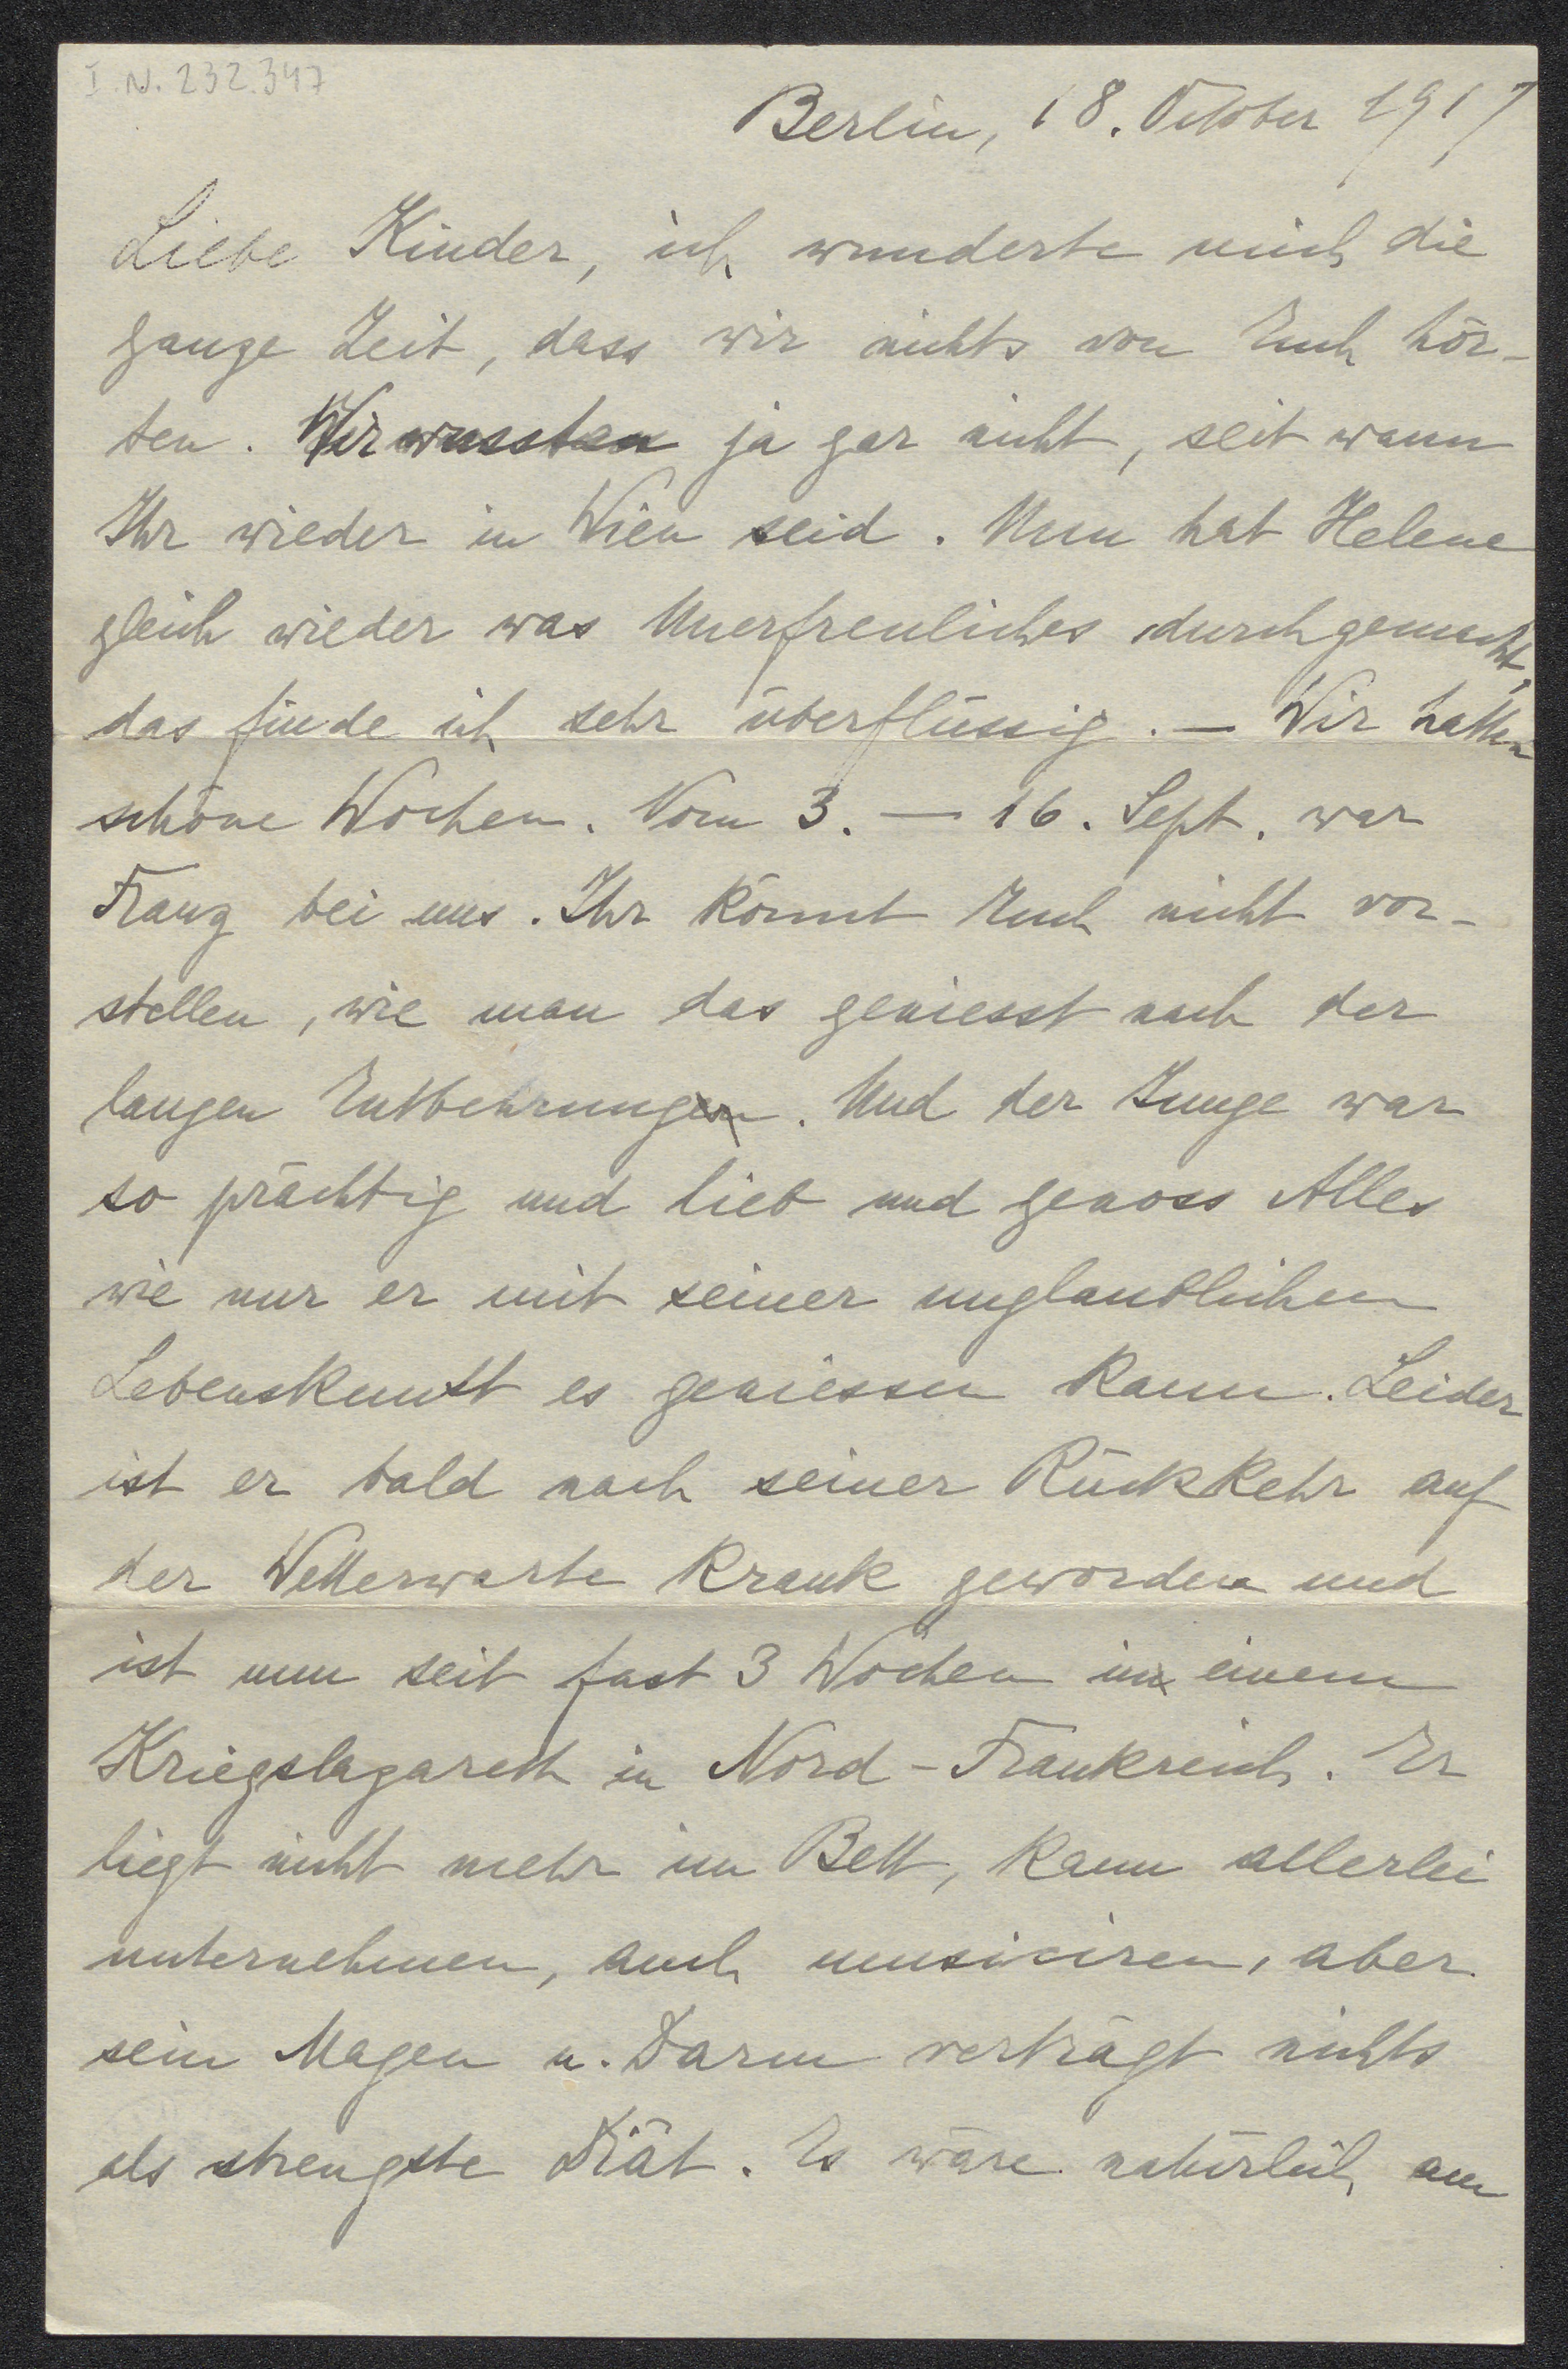 I.N. 232.347
Berlin, 18. October 1917
Liebe Kinder, ich wunderte mich die
ganze Zeit, dass wir nichts von Euch hör-
ten. Wir wussten ja gar nicht, seit wann
Ihr wieder in Wien seid. Nun hat Helene
gleich wieder was Unerfreuliches durchgemacht,
das finde ich sehr überflüssig. — Wir hatten
schöne Wochen. Vom 3. — 16. Sept. war
Franz bei uns. Ihr könnt Euch nicht vor-
stellen, wie man das geniesst nach der
langen Entbehrung. Und der Junge war
so prächtig und lieb und genoss Alles
wie nur er mit seiner unglaublichen
Lebenskunst es geniessen kann. Leider
ist er bald nach seiner Rückkehr auf
der Wetterwarte krank geworden und
ist nun seit fast 3 Wochen in einem
Kriegslazareth in Nord-Frankreich. Er
liegt nicht mehr im Bett, kann allerlei
unternehmen, auch musiciren, aber
sein Magen u. Darm verträgt nichts
als strengste Diät. Es wäre natürlich am